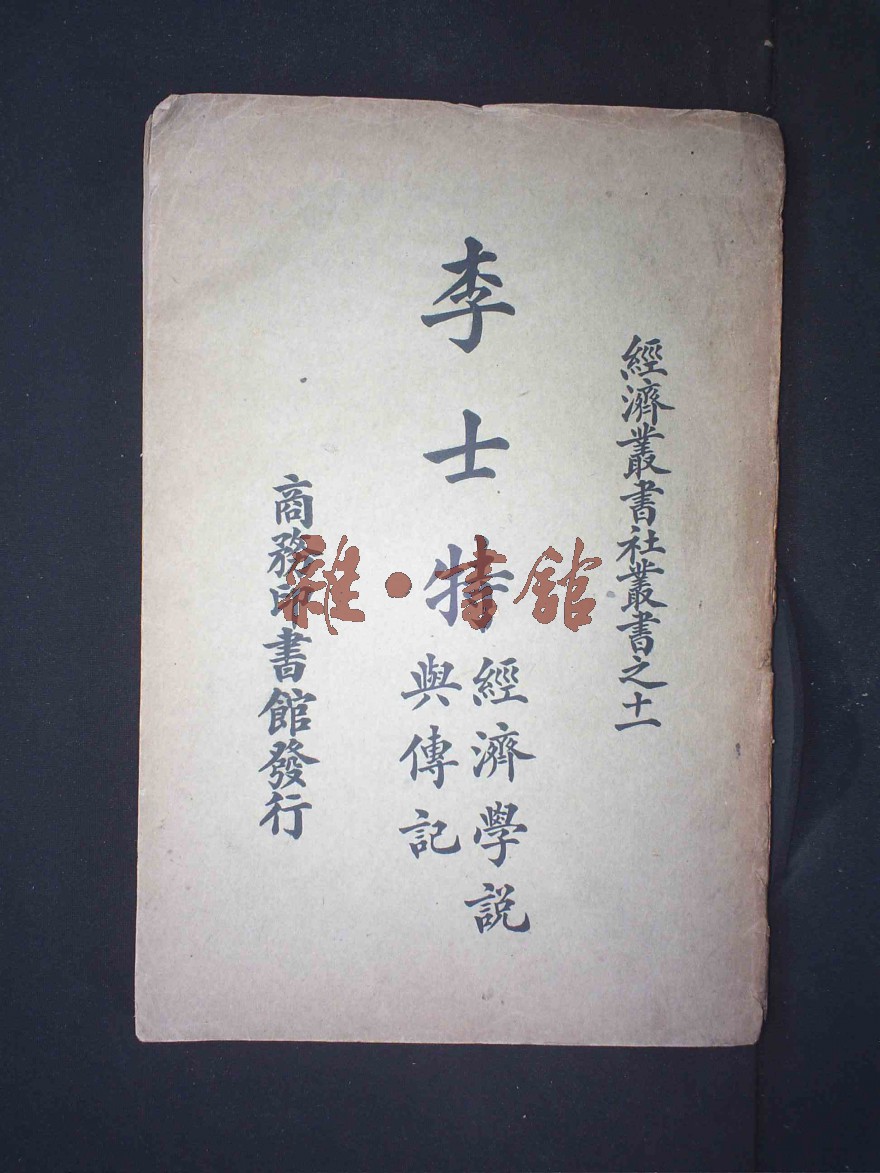 經濟叢書社叢書之十一
李士特
經濟學説
與傳記
商務印書館發行
雜·書館